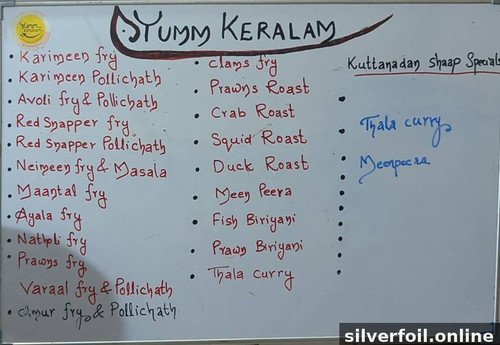 Yumm Keralam
Karimeen fry
Karimeen Pollichath
Avoli fry & Pollichath
Red Snapper fry
Red Snapper Pollichath
Neimeen fry & Masala
Maantal fry
Ayala fry
Natholi fry
Prawns fry
Varaal fry & Pollichath
fry & Pollichath
Clams fry
Prawns Roast
Crab Roast
Squid Roast
Duck Roast
Meen Peera
Fish Biriyani
Prawn Biriyani
Thala curry
Kuttanadan Shaap Specials
Thala curry
Meenpeera
silverfoil.online